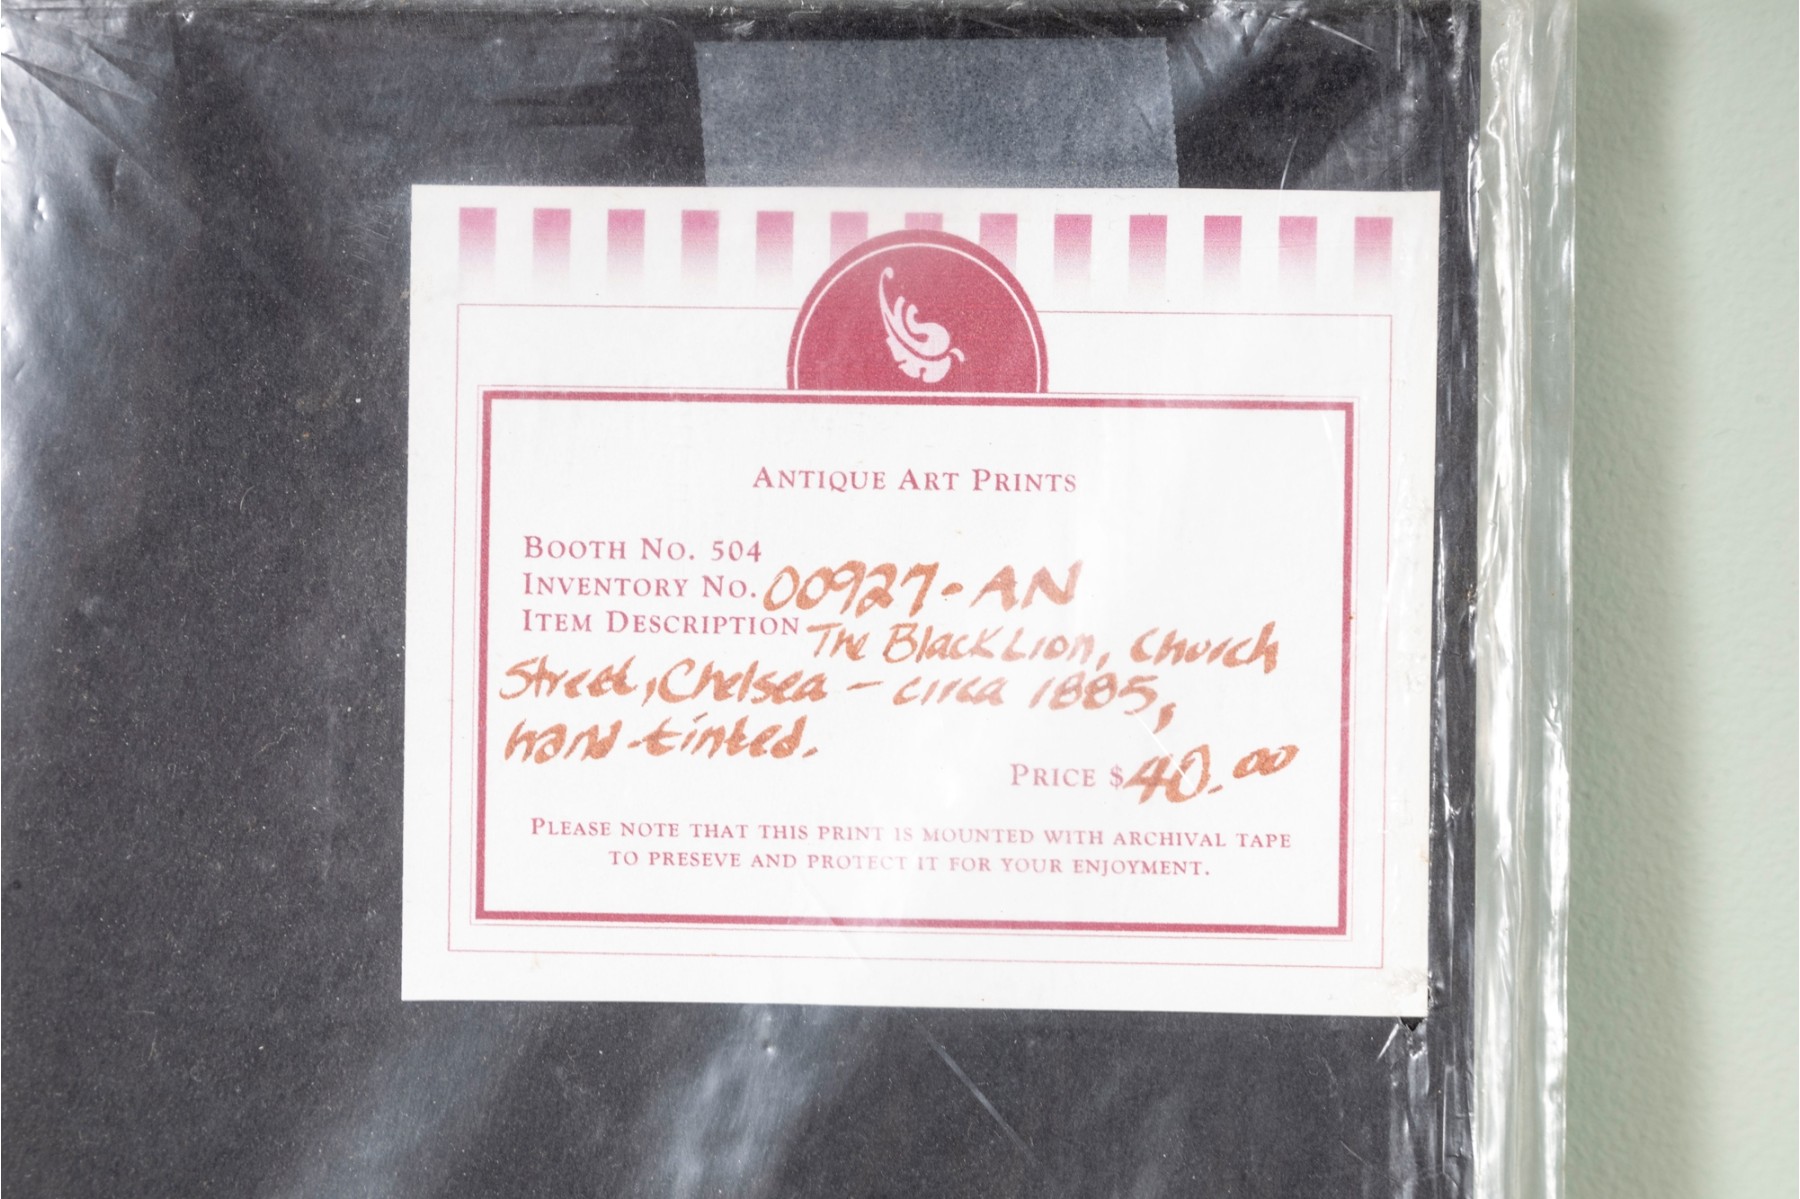 ANTIQUE ART PRINTS
BOOTH NO. 504
INVENTORY NO. 00927-AN
ITEM DESCRIPTION The Black Lion, Church
Street, Chelsea – circa 1885,
hand-tinted.
PRICE $40.00
PLEASE NOTE THAT THIS PRINT IS MOUNTED WITH ARCHIVAL TAPE
TO PRESEVE AND PROTECT IT FOR YOUR ENJOYMENT.